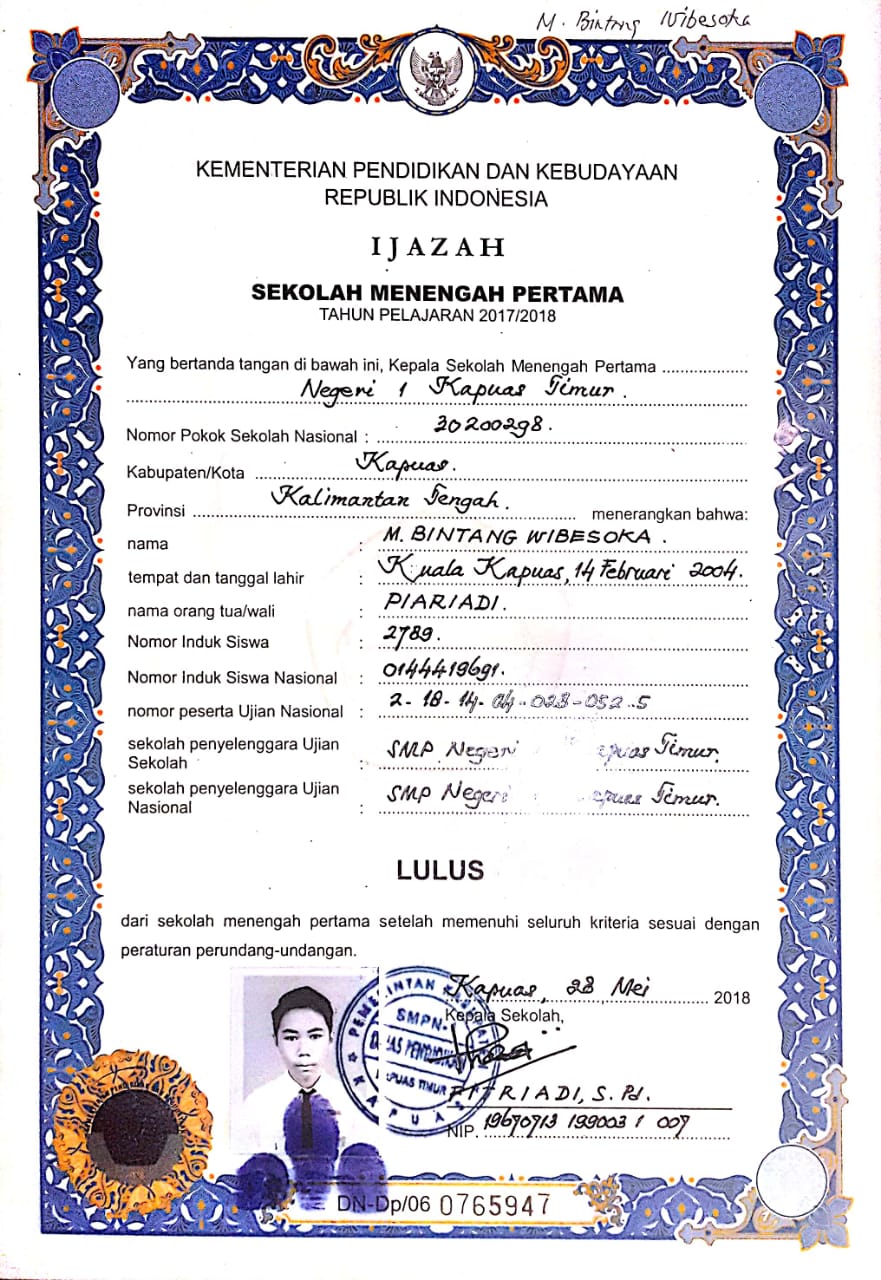 M. Bintang Wibesoka
KEMENTERIAN PENDIDIKAN DAN KEBUDAYAAN
REPUBLIK INDONESIA
IJAZAH
SEKOLAH MENENGAH PERTAMA
TAHUN PELAJARAN 2017/2018
Yang bertanda tangan di bawah ini, Kepala Sekolah Menengah Pertama
Negeri 1 Kapuas Timur.
Nomor Pokok Sekolah Nasional : 30200298.
Kabupaten/Kota Kapuas.
Provinsi Kalimantan Tengah. menerangkan bahwa:
nama : M. BINTANG WIBESOKA.
tempat dan tanggal lahir : Kuala Kapuas, 14 Februari 2004.
nama orang tua/wali : PIARIADI.
Nomor Induk Siswa : 2789.
Nomor Induk Siswa Nasional : 0144419691.
nomor peserta Ujian Nasional : 2-18-14-04-023-052-5
sekolah penyelenggara Ujian
Sekolah : SMP Negeri Kapuas Timur.
sekolah penyelenggara Ujian
Nasional : SMP Negeri Kapuas Timur.
LULUS
dari sekolah menengah pertama setelah memenuhi seluruh kriteria sesuai dengan
peraturan perundang-undangan.
Kapuas, 28 Mei 2018
Kepala Sekolah,
FITRIADI, S. Pd.
NIP. 19670713 199003 1 007
DN-Dp/06 0765947